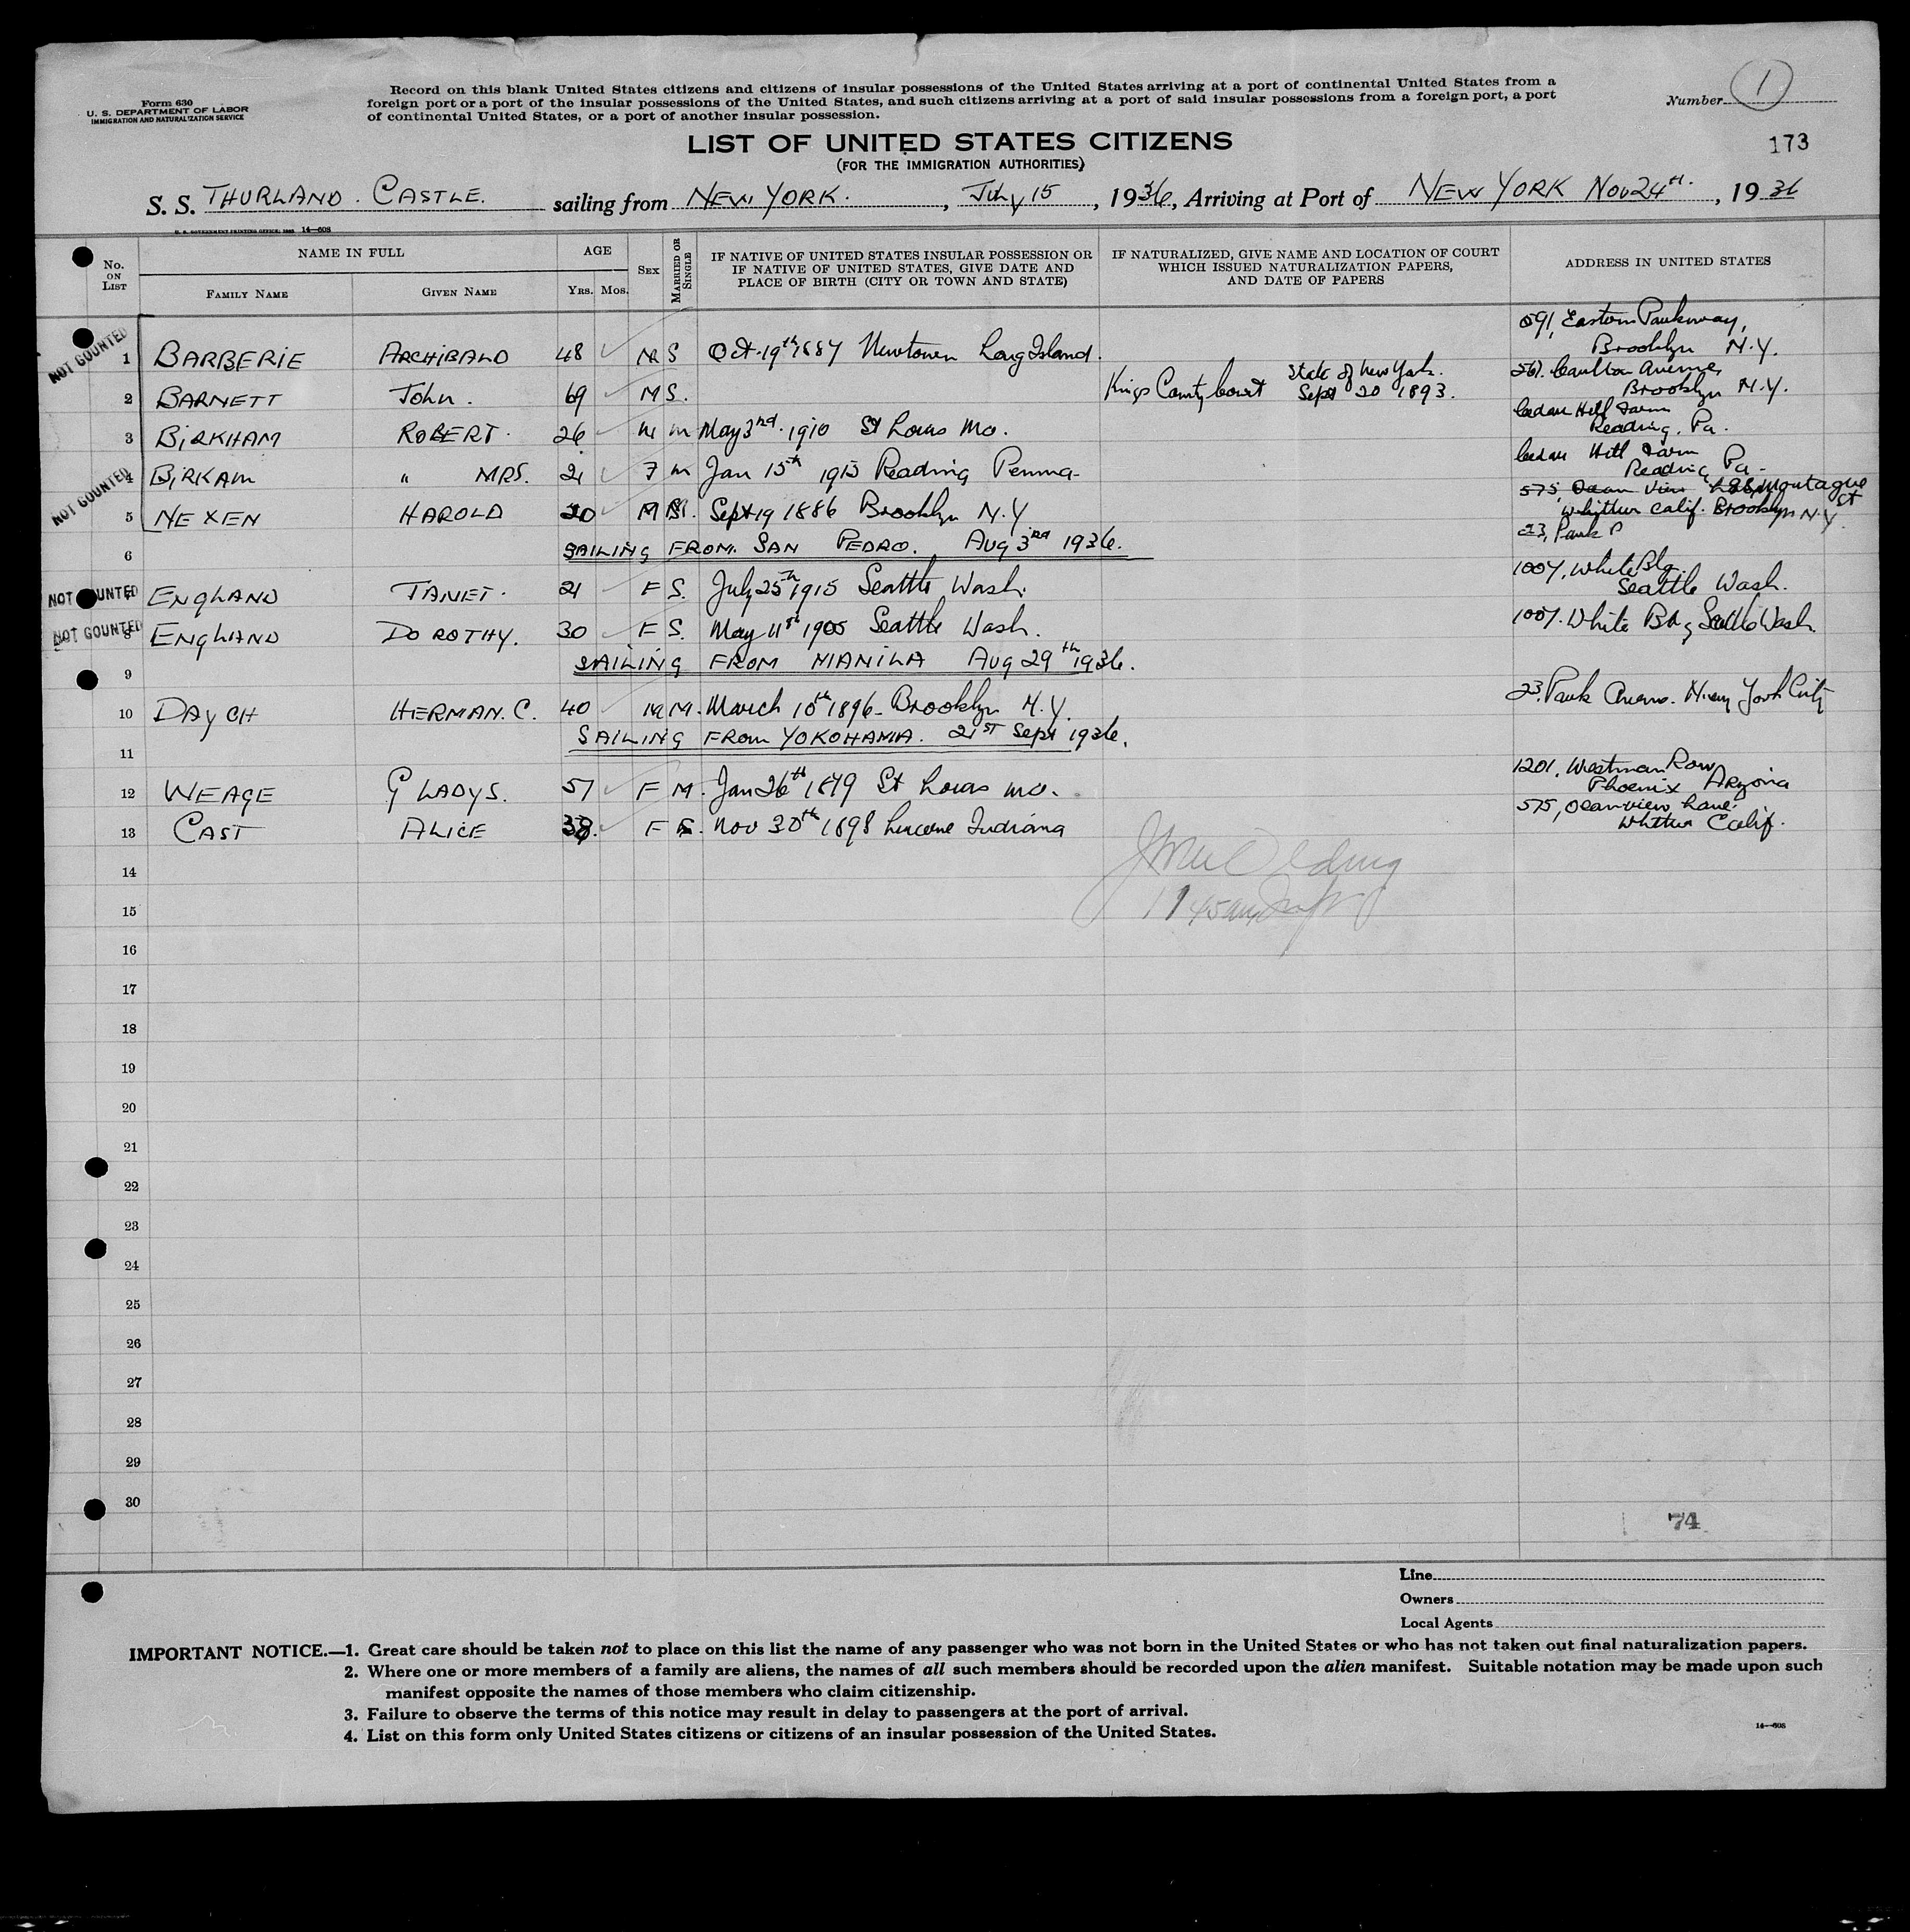 Form 630
U. S. DEPARTMENT OF LABOR
IMMIGRATION AND NATURALIZATION SERVICE
Record on this blank United States citizens and citizens of insular possessions of the United States arriving at a port of continental United States from a
foreign port or a port of the insular possessions of the United States, and such citizens arriving at a port of said insular possessions from a foreign port, a port
of continental United States, or a port of another insular possession.
Number 1
173
LIST OF UNITED STATES CITIZENS
(FOR THE IMMIGRATION AUTHORITIES)
S. S. THURLAND. CASTLE. sailing from NEW YORK. , July 15 , 1936, Arriving at Port of NEW YORK Nov 24th. , 1936
U. S. GOVERNMENT PRINTING OFFICE: 14—608
No. ON LIST
NAME IN FULL
FAMILY NAME
GIVEN NAME
AGE
YRS. MOS.
SEX
MARRIED OR SINGLE
IF NATIVE OF UNITED STATES INSULAR POSSESSION OR
IF NATIVE OF UNITED STATES, GIVE DATE AND
PLACE OF BIRTH (CITY OR TOWN AND STATE)
IF NATURALIZED, GIVE NAME AND LOCATION OF COURT
WHICH ISSUED NATURALIZATION PAPERS,
AND DATE OF PAPERS
ADDRESS IN UNITED STATES
NOT COUNTED
1 BARBERIE ARCHIBALD 48 M S Oct. 19th 1887 Newtown Long Island. 591, Eastern Parkway,
Brooklyn N.Y.
2 BARNETT John. 69 M S. Kings County Court State of New York. Sept 20 1893. 561. Carlton Avenue,
Brooklyn N.Y.
3 BIRKHAM ROBERT. 26 M m May 3rd. 1910 St Louis Mo. Cedar Hill Farm
Reading. Pa.
NOT COUNTED
4 BIRKAM " MRS. 21 F m Jan 15th 1915 Reading Penna- Cedar Hill Farm
Reading Pa-
5 NEXEN HAROLD M Sept 19 1886 Brooklyn N.Y 575, Ocean View 88 Montague St
Whittier Calif. Brooklyn N.Y.
23, Park
6 SAILING FROM. SAN PEDRO. Aug 3rd 1936.
NOT COUNTED
7 ENGLAND JANET. 21 F S. July 25th 1915 Seattle Wash. 1007, White Blg.
Seattle Wash.
NOT COUNTED
8 ENGLAND DOROTHY. 30 F S. May 11th 1905 Seattle Wash. 1007. White Blg Seattle Wash.
9 SAILING FROM MANILA Aug 29th 1936.
10 DAYCH HERMAN. C. 40 M M. March 10th 1896- Brooklyn N.Y. 23. Park Avenue. New York City
11 SAILING FROM YOKOHAMA. 21ST Sept 1936.
12 WEAGE GLADYS. 57 F M. Jan 26th 1879 St Louis Mo. 1201, Westman Row
Phoenix Aryona
13 CAST ALICE 38. F S. Nov 30th 1898 Indiana 575, Oceanview Lane.
Whittier Calif.
14
15
16
17
18
19
20
21
22
23
24
25
26
27
28
29
30
74
Line
Owners
Local Agents
IMPORTANT NOTICE.—1. Great care should be taken not to place on this list the name of any passenger who was not born in the United States or who has not taken out final naturalization papers.
2. Where one or more members of a family are aliens, the names of all such members should be recorded upon the alien manifest. Suitable notation may be made upon such
manifest opposite the names of those members who claim citizenship.
3. Failure to observe the terms of this notice may result in delay to passengers at the port of arrival.
4. List on this form only United States citizens or citizens of an insular possession of the United States.
14—608